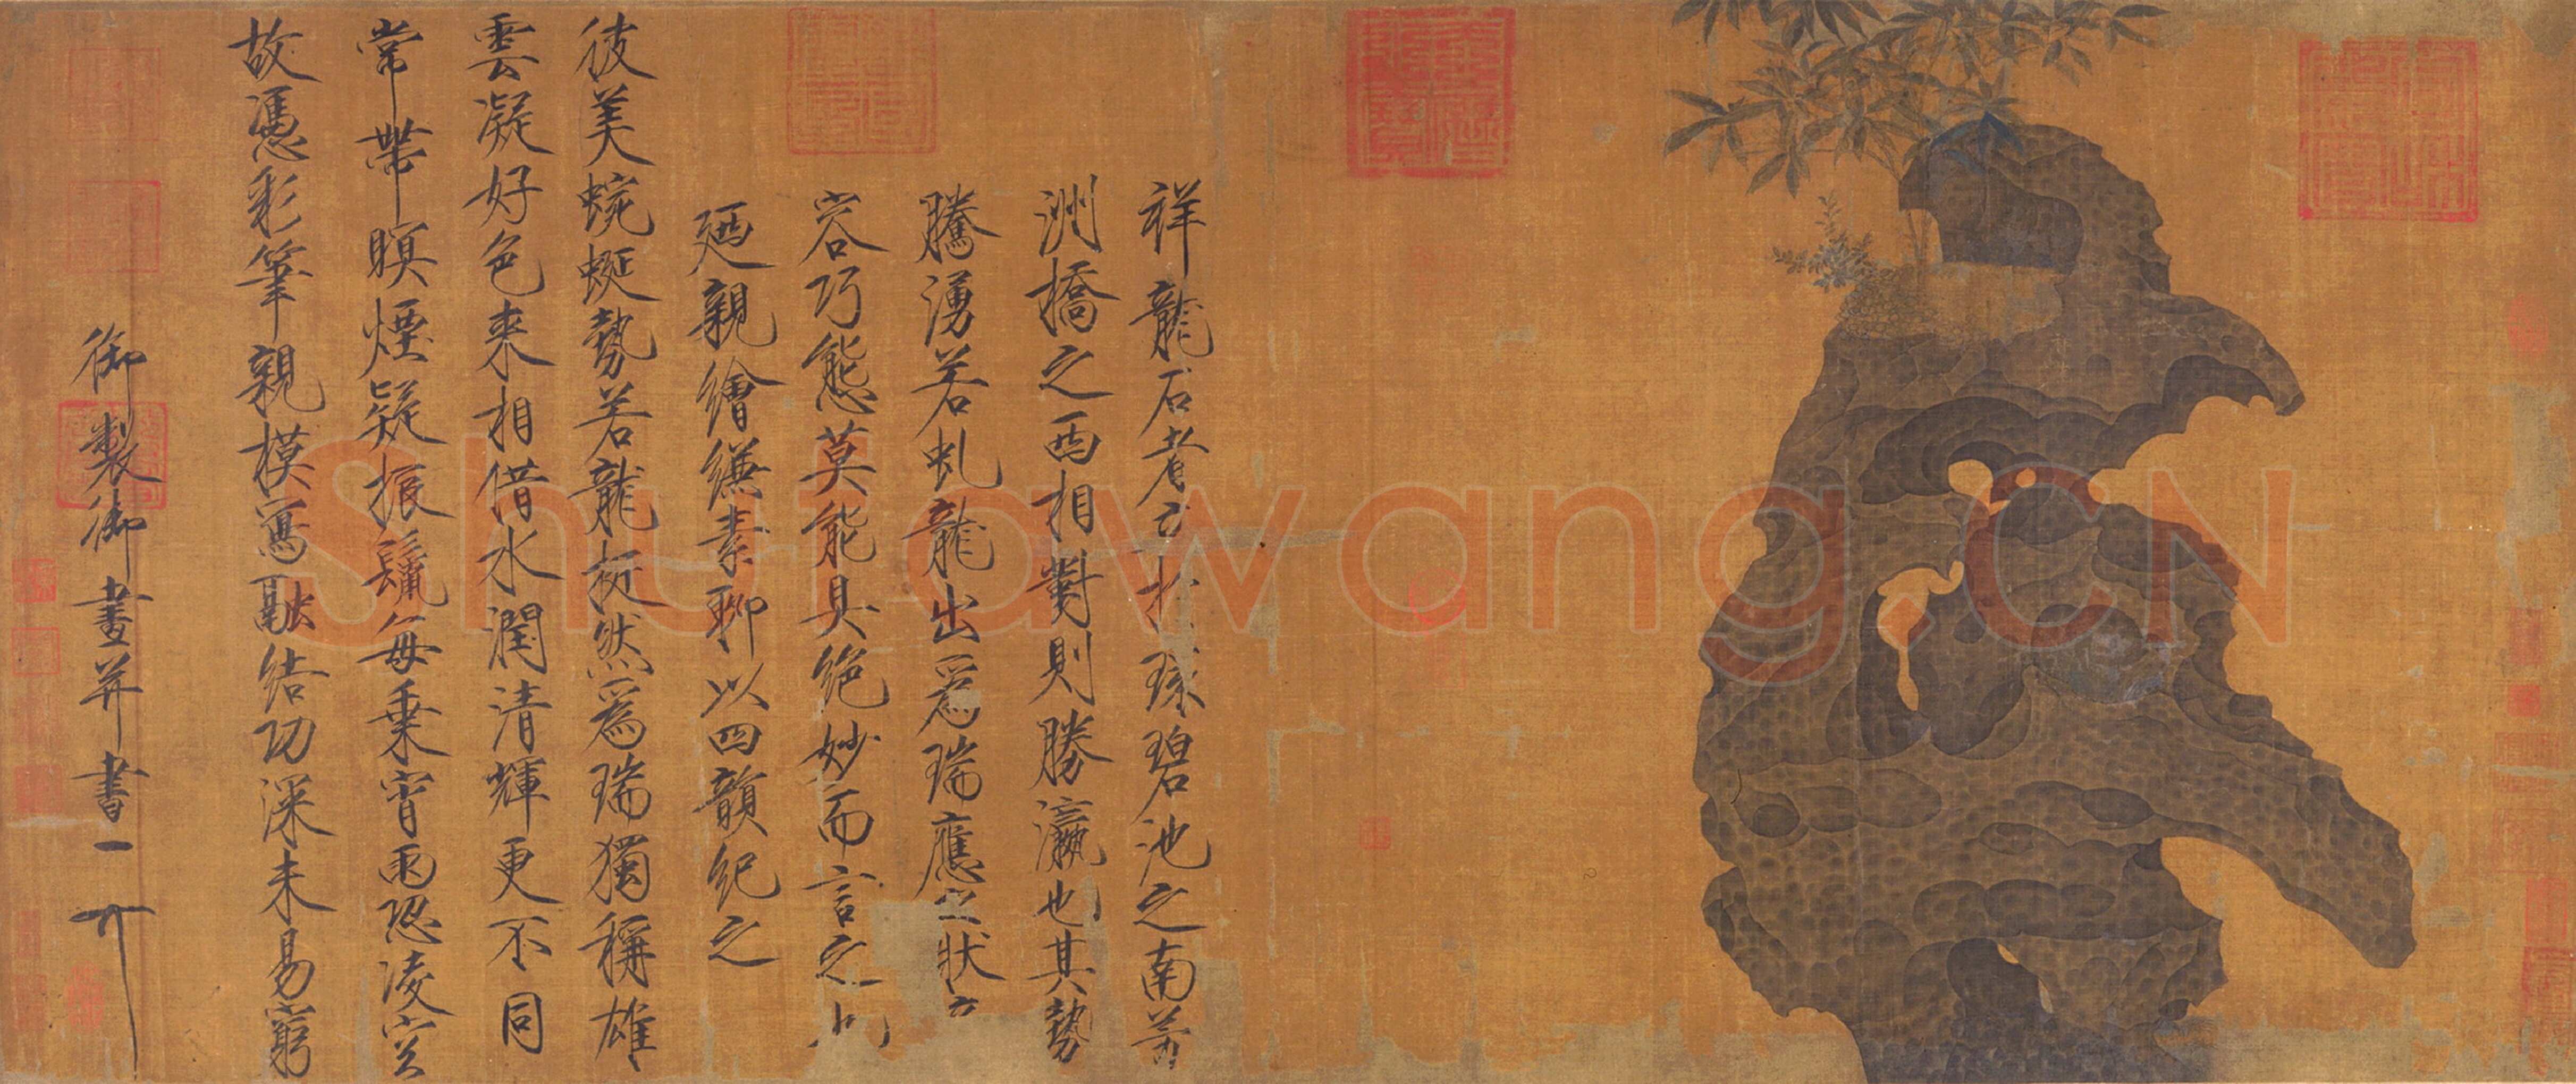 祥龍石者立於環碧池之南芳
洲橋之西相對則勝瀛也其勢
騰湧若虬龍出為瑞應之狀
容巧態莫能具絕妙而言之
廼親繪縑素聊以四韻紀之
彼美蜿蜒勢若龍挺然為瑞獨稱雄
雲凝好色來相借水潤清輝更不同
常帶暝煙疑振鬣每乘宵雨恐凌空
故憑彩筆親模寫融結功深未易窮
御製御畫并書
Shufawang.CN